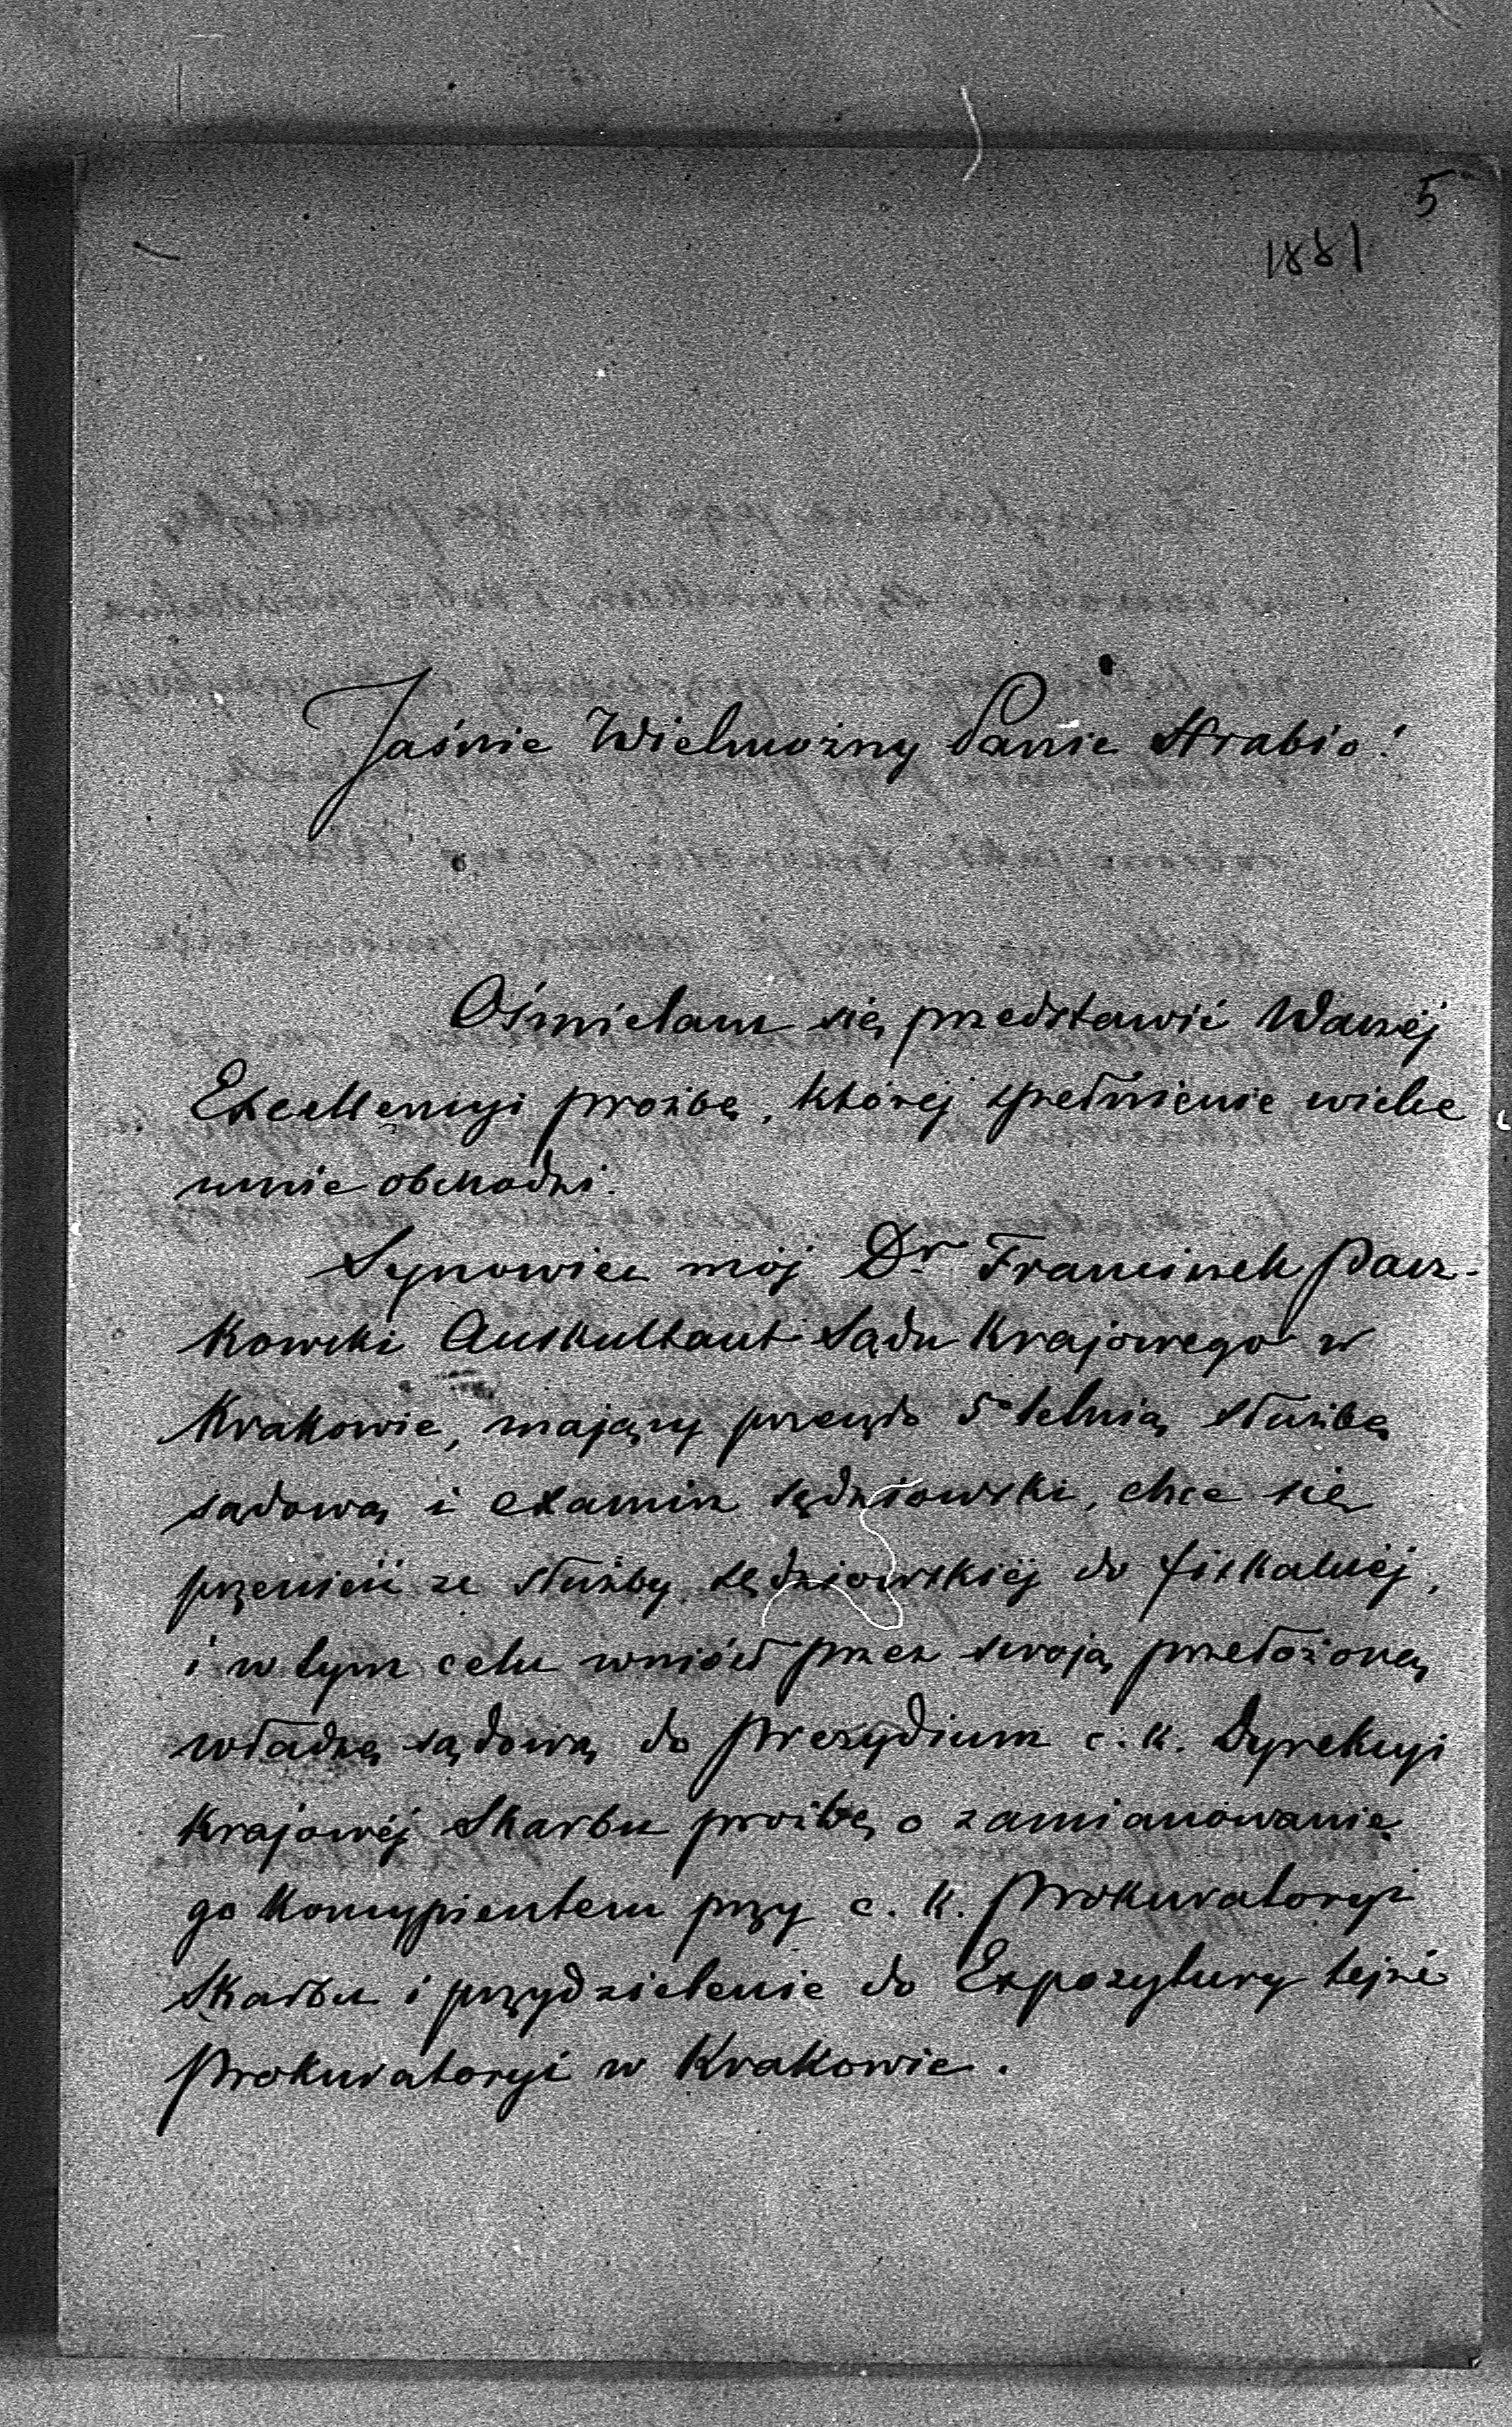 5
1881
Jaśnie Wielmożny Panie Hrabio!
Ośmielam się przedstawić Waszéj
Excellencyi prośbę, któréj spełnienie wielce
mnie obchodzi.
Synowiec mój Dr Franciszek Pasz-
kowski Auskultant Sądu Krajowego w
Krakowie, mający przeszło 5 letnią służbę
sądową i examin sędziowski, chce się
przenieść ze służby sędziowskiéj do fiskalnéj,
i w tym celu wniósł przez swoją przełożoną
władzę sądową do Prezydium c. k. Dyrekcyi
Krajowéj Skarbu prośbę o zamianowanie
go koncypientem przy c. k. Prokuratoryi
Skarbu i przydzielenie do Expozytury tejże
Prokuratoryi w Krakowie.